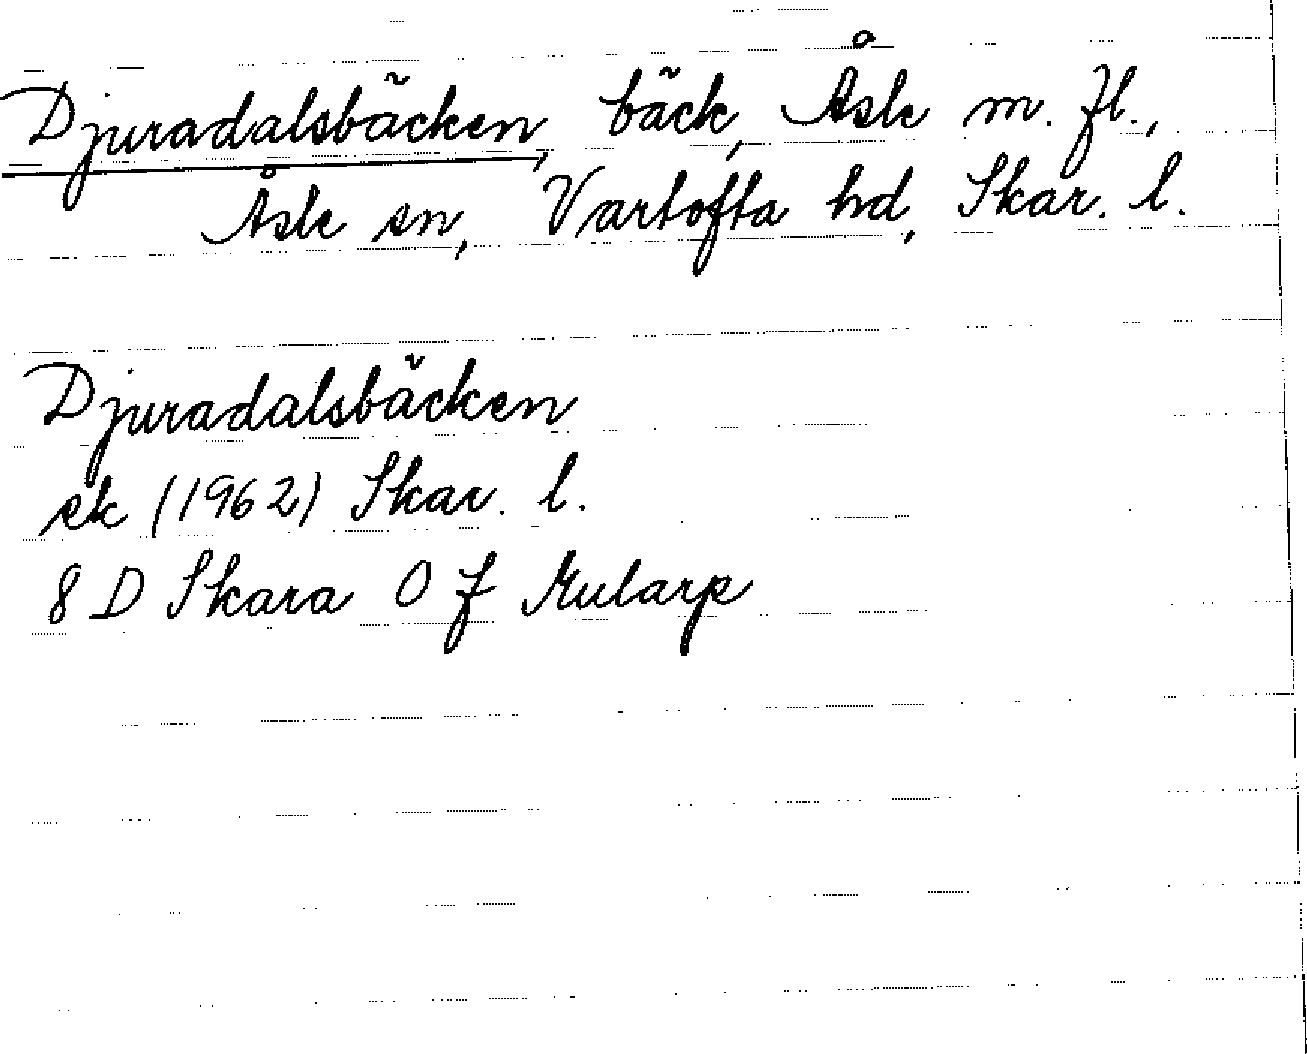 Djuradalsbäcken, bäck, Åsle m. fl.,
Åsle sn, Vartofta hd, Skar. l.
Djuradalsbäcken
ek (1962) Skar. l.
8 D Skara 0 f Mularp